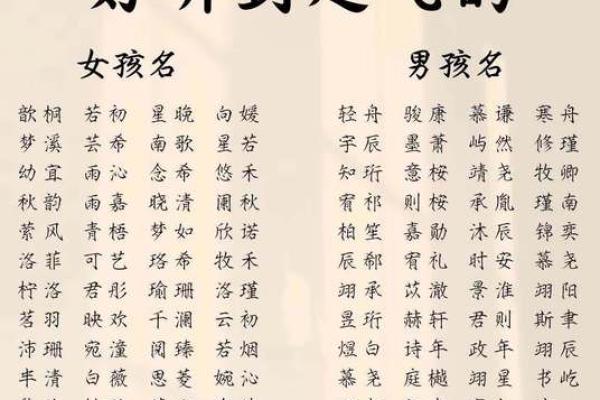 好听到起飞的
女孩名 男孩名
歆桐 若初 星晚 向媛 轻舟 骏康 慕谦 寒舟
梦溪 芸希 南歌 星若 宇辰 墨萧 屿然 修瑾
幼宜 雨沁 念希 悠禾 知珩 意桉 靖尧 牧卿
秋韵 雨嘉 晓清 阑秋 宥祁 则桉 承胤 瑾南
萦风 青梧 梦如 欣诺 柏笙 嘉勋 沐辰 锦奕
洛菲 可艺 珞希 牧禾 辰郗 宥礼 时安 慕尧
柠洛 君彤 瑜珊 洛瑾 翊承 苡澈 景淮 翊阳
茗羽 映欢 千澜 云初 昱珩 赫轩 君则 斯聿
沛珊 宛潼 阅臻 若烟 煜白 诗年 政年 翊辰
芈清 白薇 思菱 婉沁 慕尧 庭樾 翊星 书屹